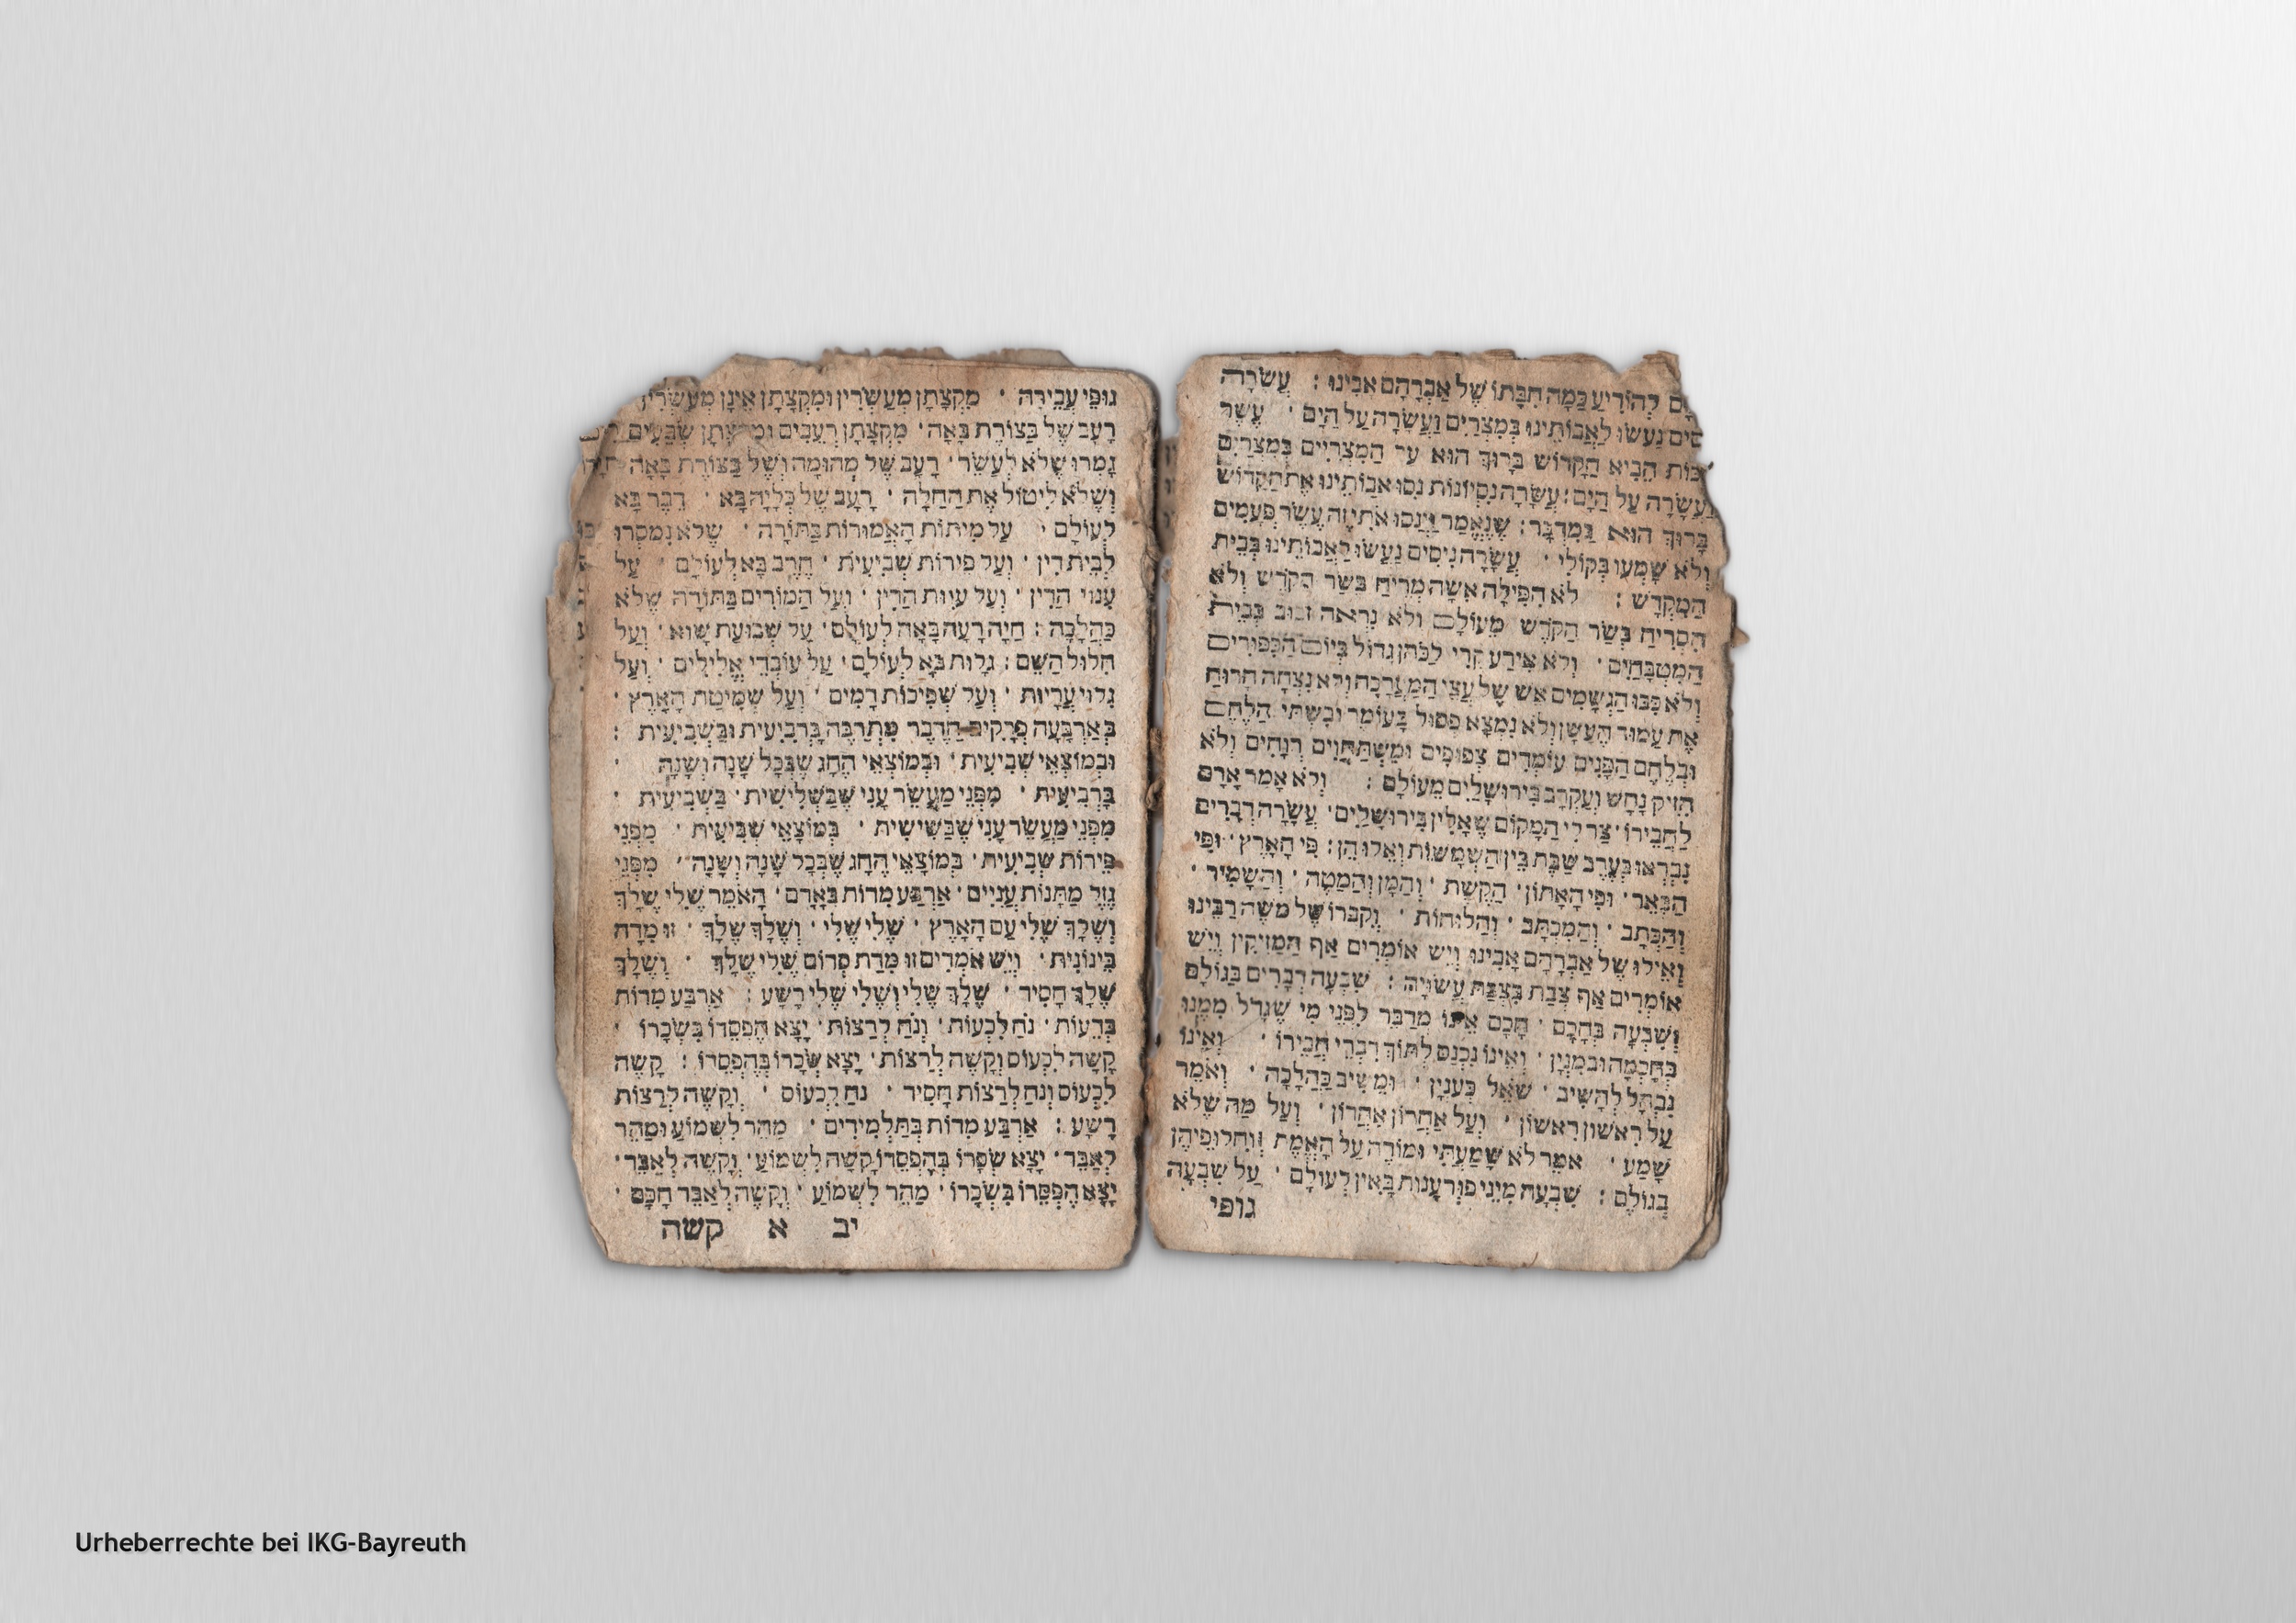 לְהוֹדִיעַ כַּמָּה חִבָּתוֹ שֶׁל אַבְרָהָם אָבִינוּ : עֲשָׂרָה
נַעֲשׂוּ לַאֲבוֹתֵינוּ בְּמִצְרַיִם וַעֲשָׂרָה עַל הַיָּם · עֶשֶׂר
הֵבִיא הַקָּדוֹשׁ בָּרוּךְ הוּא עַל הַמִּצְרִיִּים בְּמִצְרַיִם
וַעֲשָׂרָה עַל הַיָּם : עֲשָׂרָה נִסְיוֹנוֹת נִסּוּ אֲבוֹתֵינוּ אֶת הַקָּדוֹשׁ
בָּרוּךְ הוּא בַּמִּדְבָּר : שֶׁנֶּאֱמַר וַיְנַסּוּ אֹתִי זֶה עֶשֶׂר פְּעָמִים
וְלֹא שָׁמְעוּ בְּקוֹלִי · עֲשָׂרָה נִיסִים נַעֲשׂוּ לַאֲבוֹתֵינוּ בְּבֵית
הַמִּקְדָּשׁ : לֹא הִפִּילָה אִשָּׁה מֵרֵיחַ בְּשַׂר הַקֹּדֶשׁ וְלֹא
הִסְרִיחַ בְּשַׂר הַקֹּדֶשׁ מֵעוֹלָם וְלֹא נִרְאָה זְבוּב בְּבֵית
הַמִּטְבָּחַיִם · וְלֹא אִירַע קֶרִי לְכֹהֵן גָּדוֹל בְּיוֹם הַכִּפּוּרִים
וְלֹא כִּבּוּ הַגְּשָׁמִים אֵשׁ שֶׁל עֲצֵי הַמַּעֲרָכָה וְלֹא נִצְּחָה הָרוּחַ
אֶת עַמּוּד הֶעָשָׁן וְלֹא נִמְצָא פִּסּוּל בָּעוֹמֶר וּבִשְׁתֵּי הַלֶּחֶם
וּבְלֶחֶם הַפָּנִים עוֹמְדִים צְפוּפִים וּמִשְׁתַּחֲוִים רְוָחִים וְלֹא
הִזִּיק נָחָשׁ וְעַקְרָב בִּירוּשָׁלַיִם מֵעוֹלָם : וְלֹא אָמַר אָדָם
לַחֲבֵירוֹ · צַר לִי הַמָּקוֹם שֶׁאָלִין בִּירוּשָׁלַיִם · עֲשָׂרָה דְבָרִים
נִבְרְאוּ בְּעֶרֶב שַׁבָּת בֵּין הַשְּׁמָשׁוֹת וְאֵלּוּ הֵן : פִּי הָאָרֶץ · וּפִי
הַבְּאֵר · וּפִי הָאָתוֹן · הַקֶּשֶׁת · וְהַמָּן וְהַמַּטֶּה · וְהַשָּׁמִיר ·
וְהַכְּתָב · וְהַמִּכְתָּב · וְהַלּוּחוֹת · וְקִבְרוֹ שֶׁל מֹשֶׁה רַבֵּינוּ
וְאֵילוֹ שֶׁל אַבְרָהָם אָבִינוּ וְיֵשׁ אוֹמְרִים אַף הַמַּזִּיקִין וְיֵשׁ
אוֹמְרִים אַף צְבָת בִּצְבָת עֲשׂוּיָה : שִׁבְעָה דְבָרִים בַּגּוֹלָם
וְשִׁבְעָה בְּחָכָם · חָכָם אֵינוֹ מְדַבֵּר לִפְנֵי מִי שֶׁגָּדֵל מִמֶּנּוּ
בְּחָכְמָה וּבְמִנְיָן · וְאֵינוֹ נִכְנַס לְתוֹךְ דִּבְרֵי חֲבֵירוֹ · וְאֵינוֹ
נִבְהָל לְהָשִׁיב · שׁוֹאֵל כָּעִנְיָן · וּמֵשִׁיב כַּהֲלָכָה · וְאוֹמֵר
עַל רִאשׁוֹן רִאשׁוֹן · וְעַל אַחֲרוֹן אַחֲרוֹן · וְעַל מַה שֶּׁלֹּא
שָׁמַע · אוֹמֵר לֹא שָׁמַעְתִּי וּמוֹדֶה עַל הָאֱמֶת וְחִלּוּפֵיהֶן
בְּגוֹלָם : שִׁבְעָה מִינֵי פוּרְעָנוּת בָּאִין לְעוֹלָם · עַל שִׁבְעָה
גופי
גּוּפֵי עֲבֵירָה · מִקְצָתָן מְעַשְּׂרִין וּמִקְצָתָן אֵינָן מְעַשְּׂרִין
רָעָב שֶׁל בַּצּוֹרֶת בָּאָה · מִקְצָתָן רְעֵבִים וּמִקְצָתָן שְׂבֵעִים
גָּמְרוּ שֶׁלֹּא לְעַשֵּׂר · רָעָב שֶׁל מְהוּמָה וְשֶׁל בַּצּוֹרֶת בָּאָה
וְשֶׁלֹּא לִיטּוֹל אֶת הַחַלָּה · רָעָב שֶׁל כְּלָיָה בָּא · דֶּבֶר בָּא
לְעוֹלָם · עַל מִיתוֹת הָאֲמוּרוֹת בַּתּוֹרָה · שֶׁלֹּא נִמְסְרוּ
לְבֵית דִּין · וְעַל פֵּירוֹת שְׁבִיעִית · חֶרֶב בָּא לְעוֹלָם · עַל
עִנּוּי הַדִּין · וְעַל עִיוּת הַדִּין · וְעַל הַמּוֹרִים בַּתּוֹרָה שֶׁלֹּא
כַּהֲלָכָה : חַיָּה רָעָה בָּאָה לְעוֹלָם · עַל שְׁבוּעַת שָׁוְא · וְעַל
חִלּוּל הַשֵּׁם : גָּלוּת בָּא לְעוֹלָם · עַל עוֹבְדֵי אֱלִילִים · וְעַל
גִּלּוּי עֲרָיוֹת · וְעַל שְׁפִיכוֹת דָּמִים · וְעַל שְׁמִיטַּת הָאָרֶץ ·
בְּאַרְבָּעָה פְרָקִים הַדֶּבֶר מִתְרַבֶּה בָּרְבִיעִית וּבַשְּׁבִיעִית :
וּבְמוֹצָאֵי שְׁבִיעִית · וּבְמוֹצָאֵי הֶחָג שֶׁבְּכָל שָׁנָה וְשָׁנָה ·
בָּרְבִיעִית · מִפְּנֵי מַעֲשֵׂר עָנִי שֶׁבַּשְּׁלִישִׁית · בַּשְּׁבִיעִית ·
מִפְּנֵי מַעֲשֵׂר עָנִי שֶׁבַּשִּׁישִׁית · בְּמוֹצָאֵי שְׁבִיעִית · מִפְּנֵי
פֵּירוֹת שְׁבִיעִית · בְּמוֹצָאֵי הֶחָג שֶׁבְּכָל שָׁנָה וְשָׁנָה · מִפְּנֵי
גֶּזֶל מַתְּנוֹת עֲנִיִּים · אַרְבַּע מִדּוֹת בָּאָדָם · הָאֹמֵר שֶׁלִּי שֶׁלָּךְ
וְשֶׁלָּךְ שֶׁלִּי עַם הָאָרֶץ · שֶׁלִּי שֶׁלִּי · וְשֶׁלָּךְ שֶׁלָּךְ · זוֹ מִדָּה
בֵּינוֹנִית · וְיֵשׁ אֹמְרִים זוֹ מִדַּת סְדוֹם שֶׁלִּי שֶׁלָּךְ · וְשֶׁלָּךְ
שֶׁלָּךְ חָסִיד · שֶׁלָּךְ שֶׁלִּי וְשֶׁלִּי שֶׁלִּי רָשָׁע : אַרְבַּע מִדּוֹת
בְּדֵעוֹת · נֹחַ לִכְעוֹת · וְנֹחַ לִרְצוֹת · יָצָא הֶפְסֵדוֹ בִּשְׂכָרוֹ ·
קָשֶׁה לִכְעוֹס וְקָשֶׁה לִרְצוֹת · יָצָא שְׂכָרוֹ בְּהֶפְסֵדוֹ : קָשֶׁה
לִכְעוֹס וְנֹחַ לִרְצוֹת חָסִיד · נֹחַ לִכְעוֹס · וְקָשֶׁה לִרְצוֹת
רָשָׁע : אַרְבַּע מִדּוֹת בְּתַלְמִידִים · מַהֵר לִשְׁמוֹעַ וּמַהֵר
לְאַבֵּד · יָצָא שְׂכָרוֹ בְּהֶפְסֵדוֹ קָשֶׁה לִשְׁמוֹעַ · וְקָשֶׁה לְאַבֵּד ·
יָצָא הֶפְסֵדוֹ בִּשְׂכָרוֹ · מַהֵר לִשְׁמוֹעַ · וְקָשֶׁה לְאַבֵּד חָכָם ·
יב א קשה
Urheberrechte bei IKG-Bayreuth